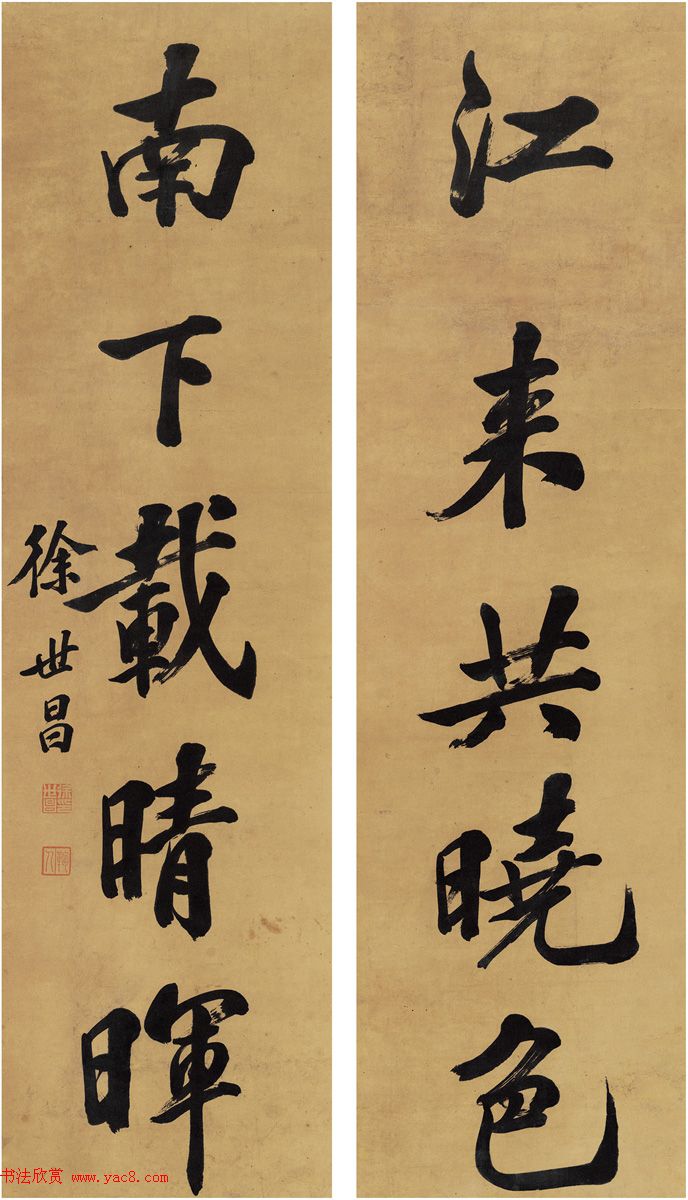 江来共曉色
南下載晴暉
徐世昌
书法欣赏 www.yac8.com